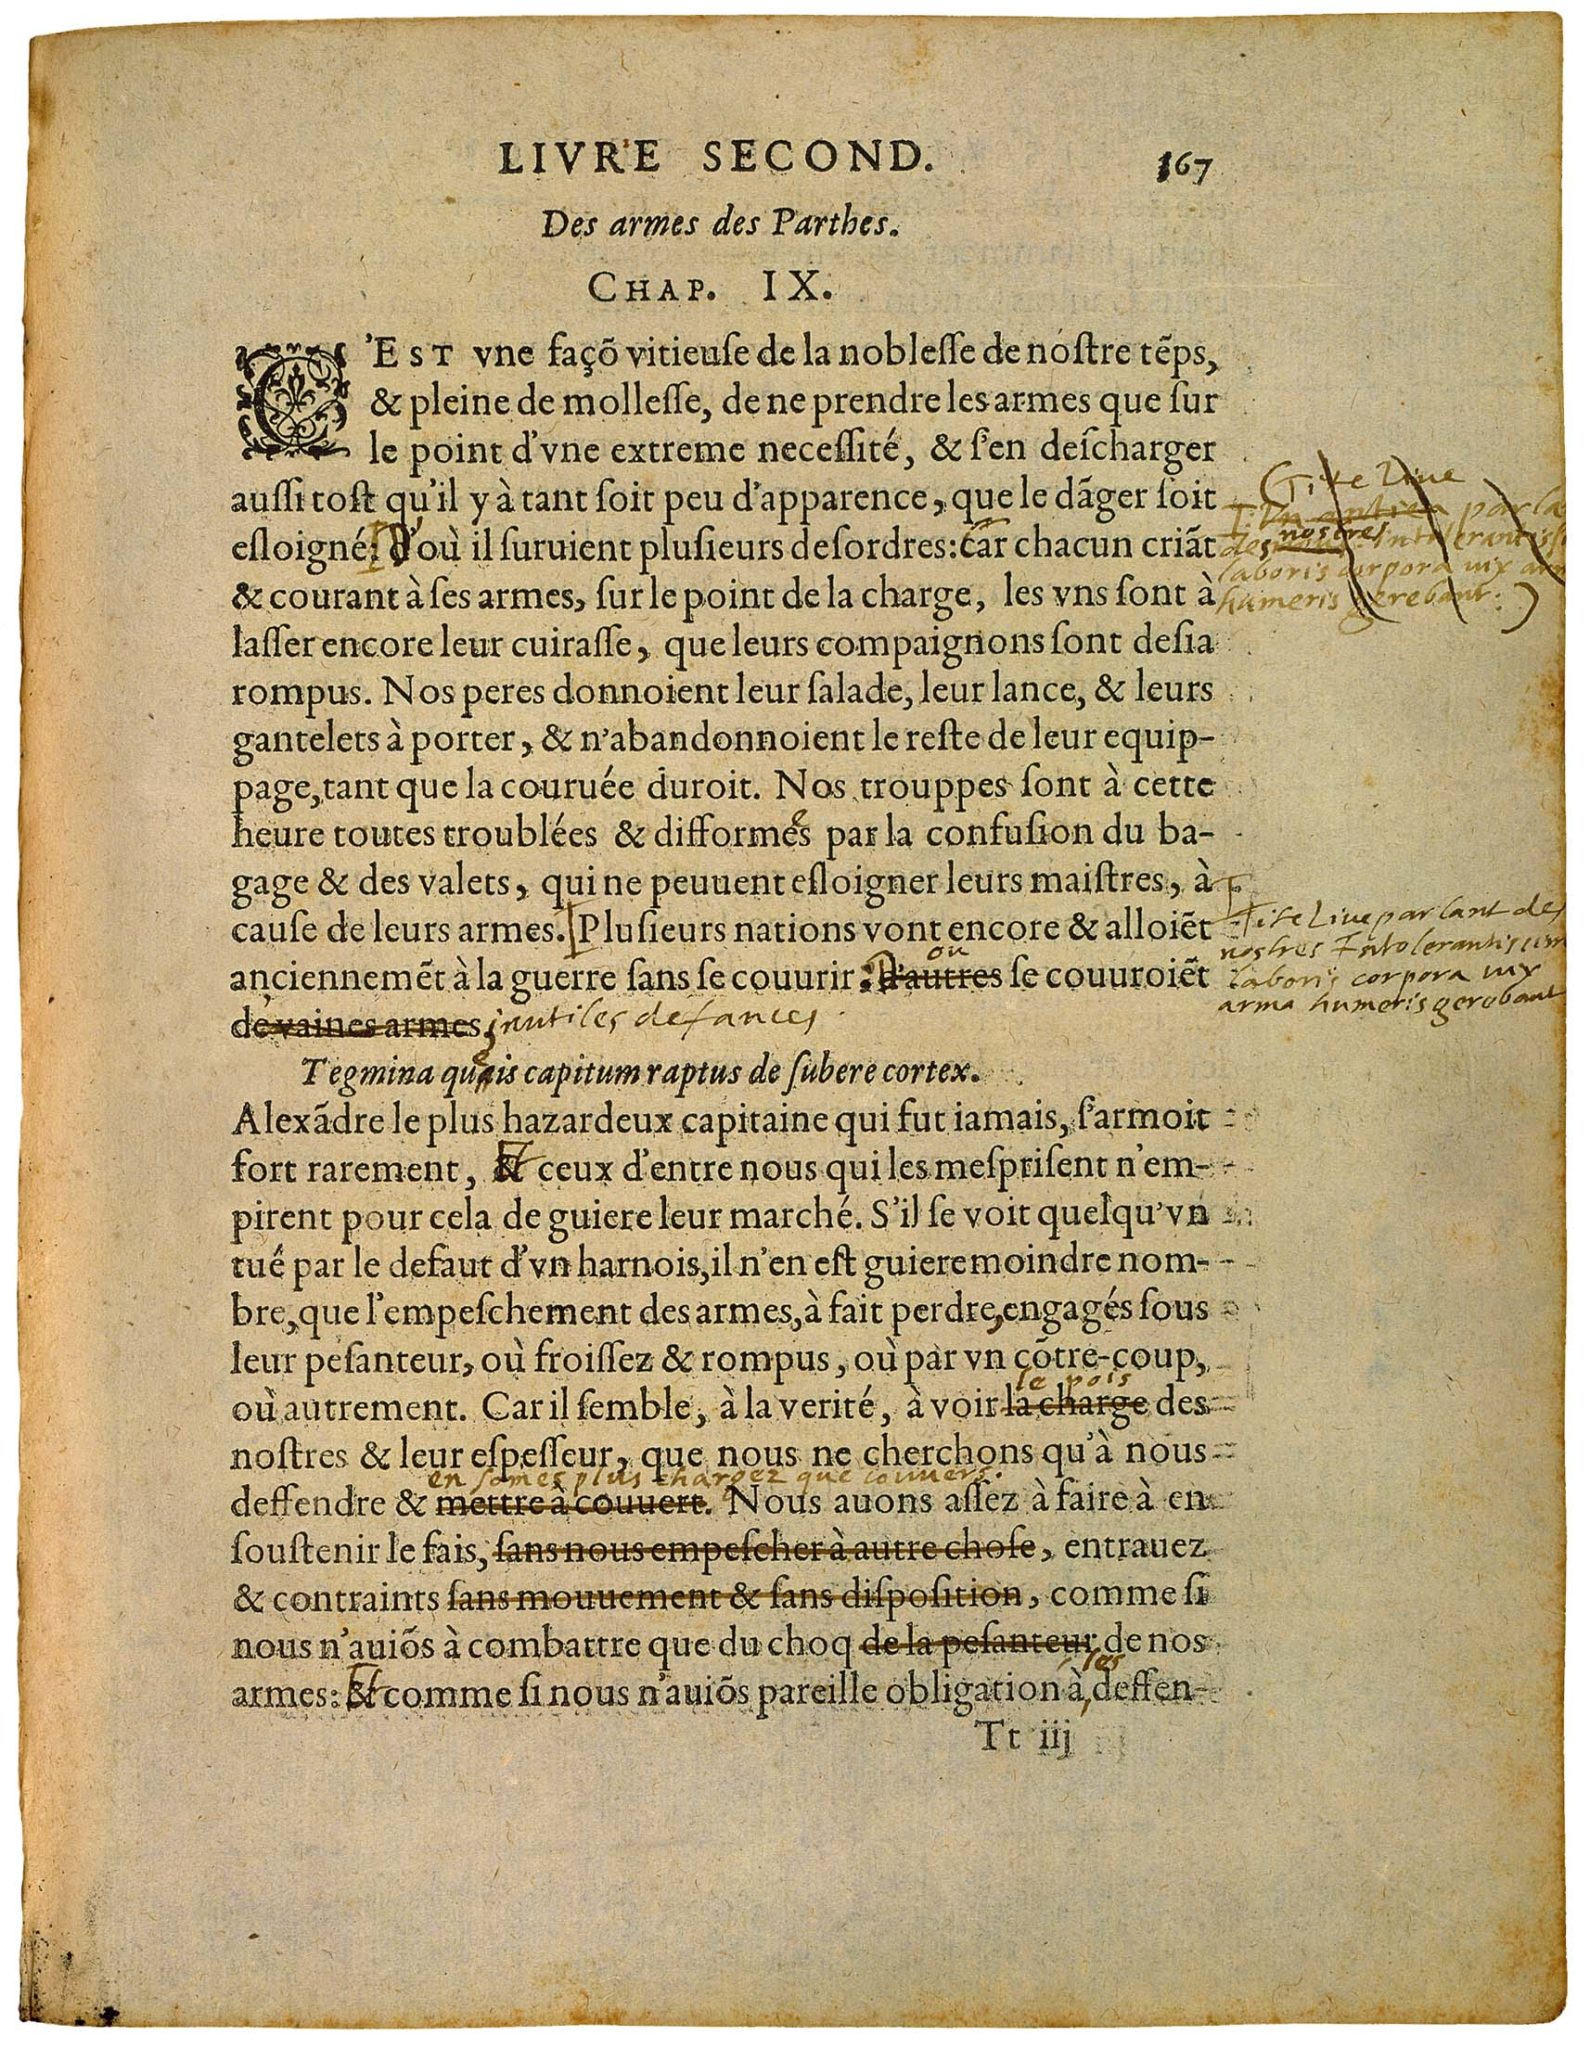 LIVRE SECOND. 167
Des armes des Parthes.
CHAP. IX.
C'EST vne façõ vitieuſe de la nobleſſe de noſtre tẽps,
& pleine de molleſſe, de ne prendre les armes que ſur
le point d'vne extreme neceſſité, & ſ'en deſcharger
auſſi toſt qu'il y à tant ſoit peu d'apparence, que le dãger ſoit
eſloigné: D'où il ſuruient pluſieurs deſordres: Car chacun criãt
& courant à ſes armes, ſur le point de la charge, les vns ſont à
laſſer encore leur cuiraſſe, que leurs compaignons ſont deſia
rompus. Nos peres donnoient leur ſalade, leur lance, & leurs
gantelets à porter, & n'abandonnoient le reſte de leur equip-
page, tant que la couruée duroit. Nos trouppes ſont à cette
heure toutes troublées & difformes par la confuſion du ba-
gage & des valets, qui ne peuuent eſloigner leurs maiſtres, à
cauſe de leurs armes. Pluſieurs nations vont encore & alloiẽt
ou
anciennemẽt à la guerre ſans ſe couurir: D'autres ſe couuroiẽt
de vaines armes, inutiles defances
Tegmina queis capitum raptus de ſubere cortex.
Alexãdre le plus hazardeux capitaine qui fut iamais, ſ'armoit
fort rarement, Et ceux d'entre nous qui les meſpriſent n'em-
pirent pour cela de guiere leur marché. S'il ſe voit quelqu'vn
tué par le defaut d'vn harnois, il n'en eſt guiere moindre nom-
bre, que l'empeſchement des armes, à fait perdre, engagés ſous
leur peſanteur, où froiſſez & rompus, où par vn cõtre-coup,
le pois
où autrement. Car il ſemble, à la verité, à voir la charge des
noſtres & leur eſpeſſeur, que nous ne cherchons qu'à nous
en somes plus chargez que couvers.
deffendre & mettre à couuert. Nous auons aſſez à faire à en
ſouſtenir le fais, ſans nous empeſcher à autre choſe, entrauez
& contraints ſans mouuement & ſans diſpoſition, comme ſi
nous n'auiõs à combattre que du choq de la peſanteur de nos
les
armes: Et comme ſi nous n'auiõs pareille obligation à deffen-
Tt iij
(Tite Live
parla
des nostres Intolerantiss
laboris corpora vix arm
humeris gerebant.)
Tite Live parlant des
nostres Intolerantissim
laboris corpora vix
arma humeris gerebant